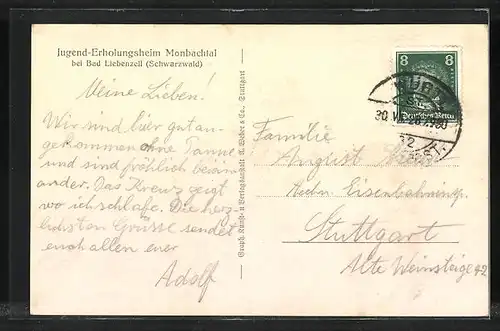 Jugend-Erholungsheim Monbachtal
bei Bad Liebenzell (Schwarzwald)
Meine Lieben!
Wir sind hier gut an-
gekommen ohne Panne
und sind fröhlich beiein-
ander. Das Kreuz zeigt
wo ich schlafe. Die herz-
lichsten Grüsse sendet
euch allen euer
Adolf
Graph. Kunst- u. Verlagsanstalt G. Weber & Co., Stuttgart
8 8
Deutsches Reich
30.
Familie
August
Stuttgart
Alte Weinsteige 42